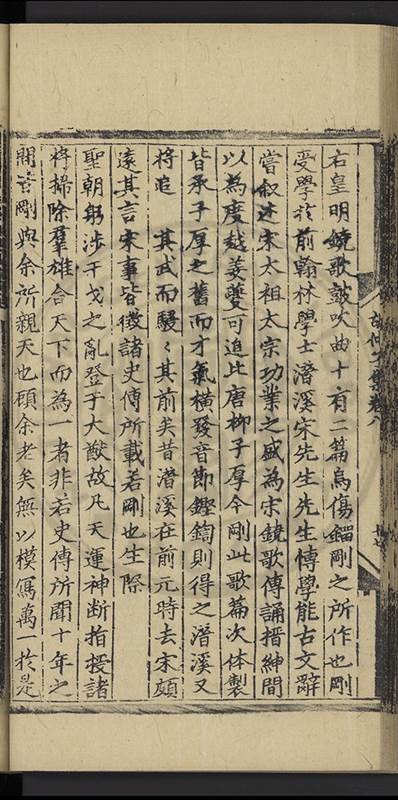 右皇明鐃歌鼓吹曲十有二篇烏傷鎦剛之所作也剛
受學於前翰林學士潛溪宋先生先生博學能古文辭
嘗叙述宋太祖太宗功業之盛為宋鐃歌傳誦搢紳間
以為度越姜夔可追比唐柳子厚今剛此歌篇次体製
皆承子厚之舊而才氣橫發音節鏗鍧則得之潛溪又
將追其武而駸〻其前矣昔潛溪在前元時去宋頗
遠其言宋事皆徵諸史傳所載若剛也生際
聖朝躬涉干戈之亂登于大猷故凡天運神断指授諸
將掃除羣雄合天下而為一者非若史傳所聞十年之
間皆剛與余所親天也頋余老矣無以模寫萬一於是
胡仲子集卷八